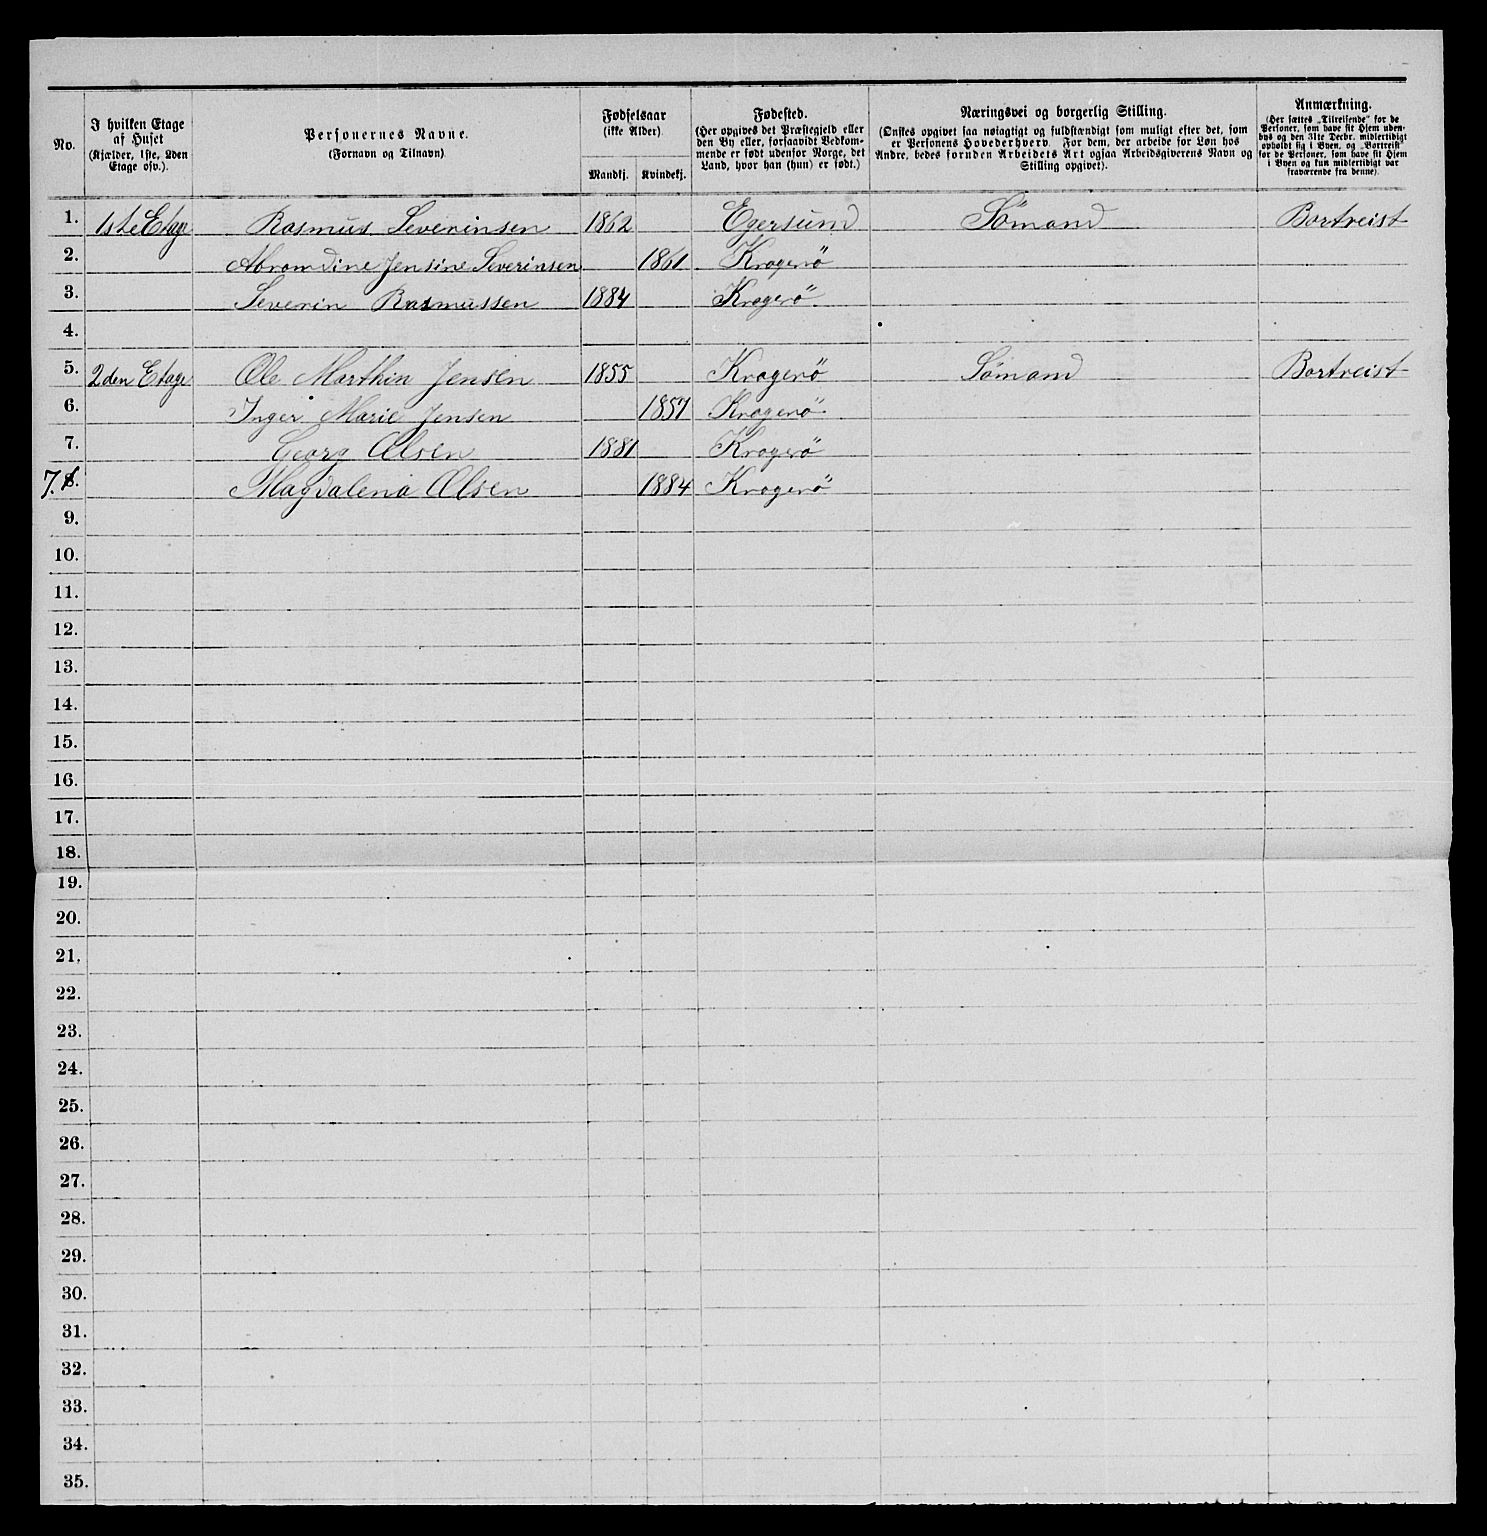 No.
I hvilken Etage af Huset
(Kjælder, 1ste, 2den Etage osv.).
Personernes Navne.
(Fornavn og Tilnavn)
Fødselsaar
(ikke Alder)
Mandkj. Kvindekj.
Fødested.
(Her opgives det Præstegjeld eller
den By eller, forsaavidt Vedkom-
mende er født udenfor Norge, det
Land, hvor han (hun) er født.)
Næringsvei og borgerlig Stilling.
(Ønskes opgivet saa nøiagtigt og fuldstændigt som muligt efter det, som
er Personens Hovederhverv. For dem, der arbeide for Løn hos
Andre, bedes foruden Arbeidets Art ogsaa Arbeidsgiverens Navn og
Stilling opgivet).
Anmærkning.
(Her sættes „Tilreisende“ for de
Personer, som have sit Hjem uden-
bys og den 31te Decbr. midlertidigt
opholdt sig i Byen, og „Bortreist“
for de Personer, som have sit Hjem
i Byen og kun midlertidigt var
fraværende fra denne).
1. 1ste Etage Rasmus Severinsen 1862 Egersund Sömand Bortreist
2. Abramdine Jensine Severinsen 1861 Kragerö
3. Severin Rasmussen 1884 Kragerö
4.
5. 2den Etage Ole Marthin Jensen 1855 Kragerö Sömand Bortreist
6. Inger Marie Jensen 1857 Kragerö
7. Georg Olsen 1881 Kragerö
7. 8. Magdalena Olsen 1884 Kragerö
9.
10.
11.
12.
13.
14.
15.
16.
17.
18.
19.
20.
21.
22.
23.
24.
25.
26.
27.
28.
29.
30.
31.
32.
33.
34.
35.